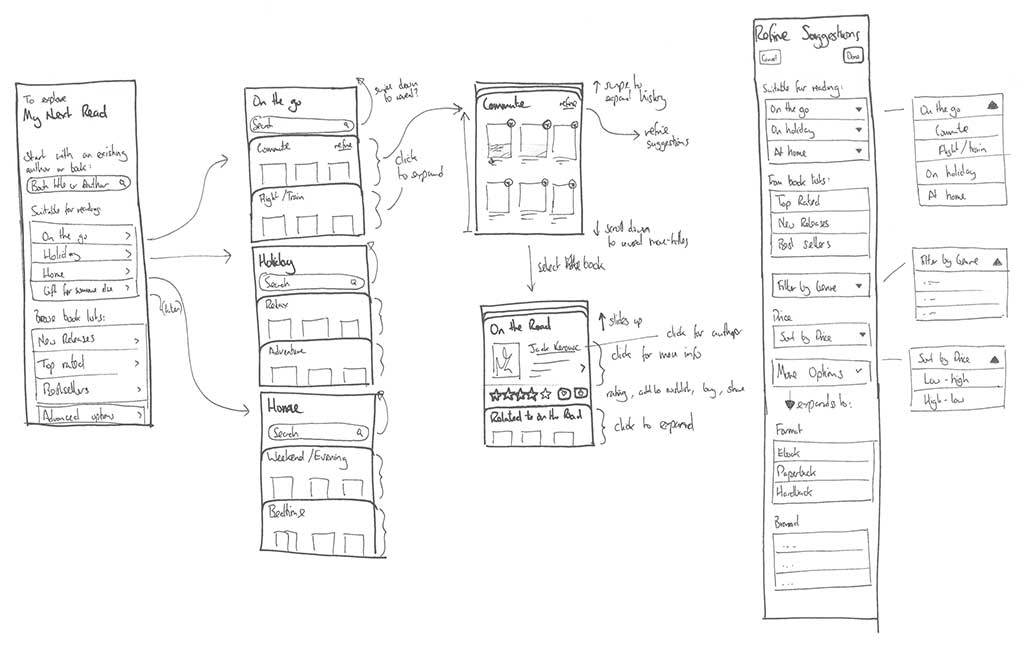 To explore
My Next Read
Start with an existing
author or book:
Book title or Author
Suitable for reading
On the go
Holiday
Home
Gift for someone else
Browse book lists:
New Releases
Top rated
Bestsellers
Advanced options
On the go
Search
Commute
refine
Flight/Train
swipe down
click
to expand
Holiday
Search
Relax
Adventure
Home
Search
Weekend/Evening
Bedtime
Commute
refine
swipe to
expand history
refine
suggestions
scroll down
to unveil more titles
select book
On the Road
Jack Kerouac
Related to on the Road
slides up
click for author
click for more info
rating, add to wishlist, buy, share
click to expand
Refine Suggestions
Cancel
Done
Suitable for reading:
On the go
On holiday
At home
From book lists:
Top Rated
New Releases
Best sellers
Filter by Genre
Price
Sort by Price
More Options
expands to:
Format
Ebook
Paperback
Hardback
...
...
...
On the go
Commute
Flight/train
On holiday
At home
Filter by Genre
Sort by Price
Low-high
High-low